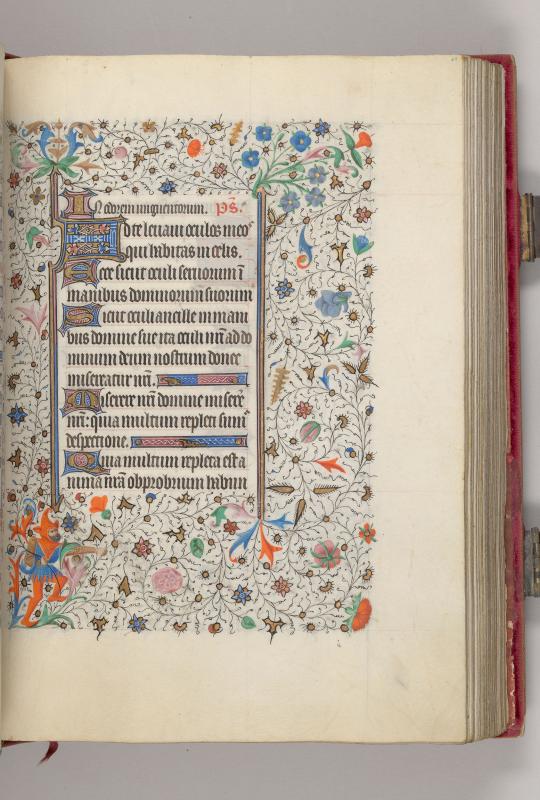 In odorem unguentorum. ps̄.
Ad te leuaui oculos meos
qui habitas in celis.
Ecce sicut oculi seruorum ī
manibus dominorum suorum
Sicut oculi ancille in mani
bus domine sue ita oculi nr̄i ad do
minum deum nostrum donec
misereatur nr̄i.
Miserere nr̄i domine miserere
nr̄i: quia multum repleti sum⁹
despectione.
Quia multum repleta est a
nima nr̄a obprobrium habun